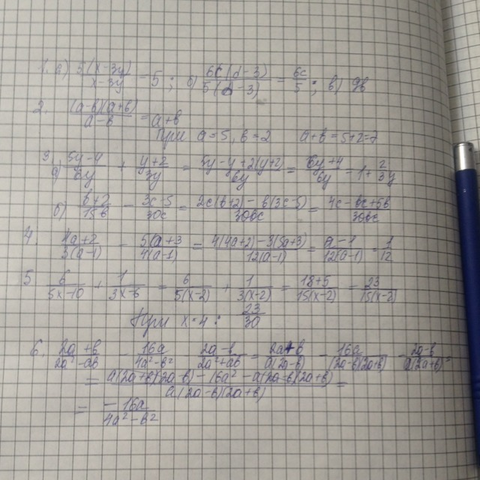 1. а) 5(x-3y)/(x-3y) = 5; б) 6c(d-3)/5(d-3) = 6c/5; в)
2. (a-b)(a+b)/(a-b) = a+b
При a=5, b=2 a+b=5+2=7
3. а) (5y-4)/6y + (y+2)/3y = (5y-4+2(y+2))/6y = = 1+
б) (b+2)/15b - (3c-5)/30c = (2c(b+2)-b(3c-5))/30bc = (4c-bc+5b)/30bc
4 (4a+2)/3(a-1) - (5a+3)/4(a-1) = (4(4a+2)-3(5a+3))/12(a-1) = (a-1)/12(a-1) = 1/12
5 6/(5x-10) + 1/(3x-6) = 6/5(x-2) + 1/3(x-2) = (18+5)/15(x-2) = 23/15(x-2)
При x=4: 23/30
6. (2a+b)/(2a²-ab) - 16a/(4a²-b²) - (2a-b)/(2a²+ab) = (2a+b)/a(2a-b) - 16a/(2a-b)(2a+b) - (2a-b)/a(2a+b) =
= (a(2a+b)(2a-b)-16a²-a(2a-b)(2a+b))/a(2a-b)(2a+b) =
= -16a/(4a²-b²)